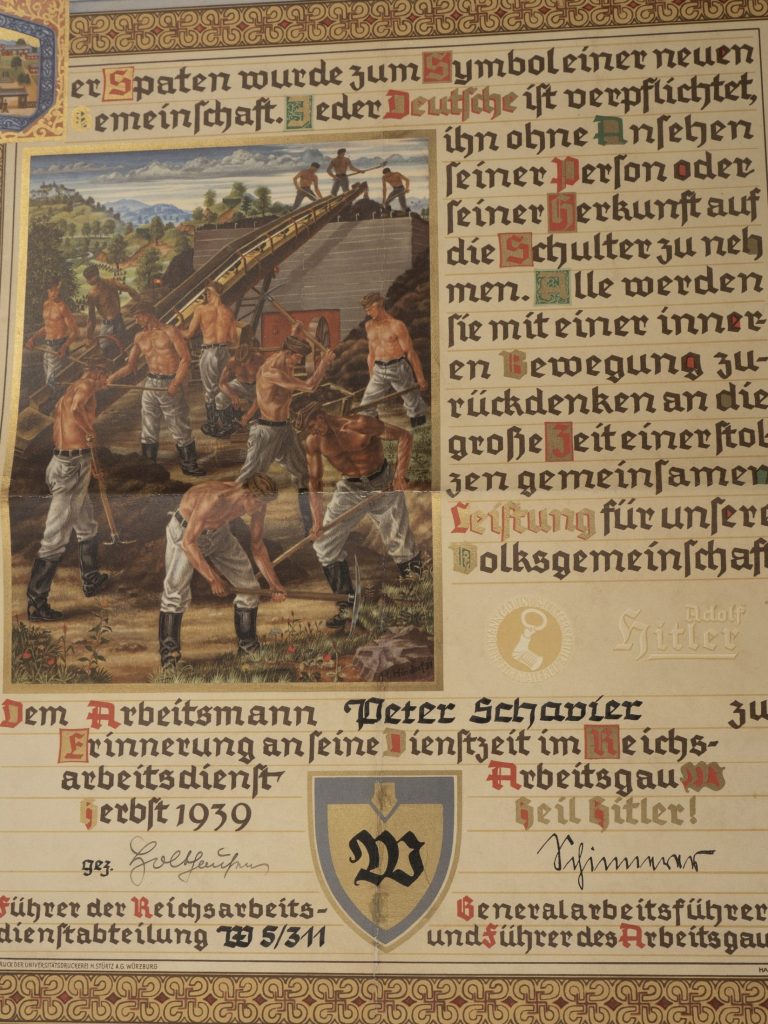 er Spaten wurde zum Symbol einer neuen
Gemeinschaft. Jeder Deutsche ist verpflichtet,
ihn ohne Ansehen
seiner Person oder
seiner Herkunft auf
die Schulter zu neh
men. Alle werden
sie mit einer inner-
en Bewegung zu-
rückdenken an die
große Zeit einer stol
zen gemeinsamen
Leistung für unsere
Volksgemeinschaft
Adolf
Hitler
Dem Arbeitsmann Peter Schavier zu
Erinnerung an seine Dienstzeit im Reichs-
arbeitsdienst Arbeitsgau W
Herbst 1939 Heil Hitler!
W
gez. Holthausen Schinnerer
Führer der Reichsarbeits-
dienstabteilung W 5/311
Generalarbeitsführer
und Führer des Arbeitsgau
DRUCK DER UNIVERSITÄTSDRUCKEREI H. STÜRTZ A.G. WÜRZBURG